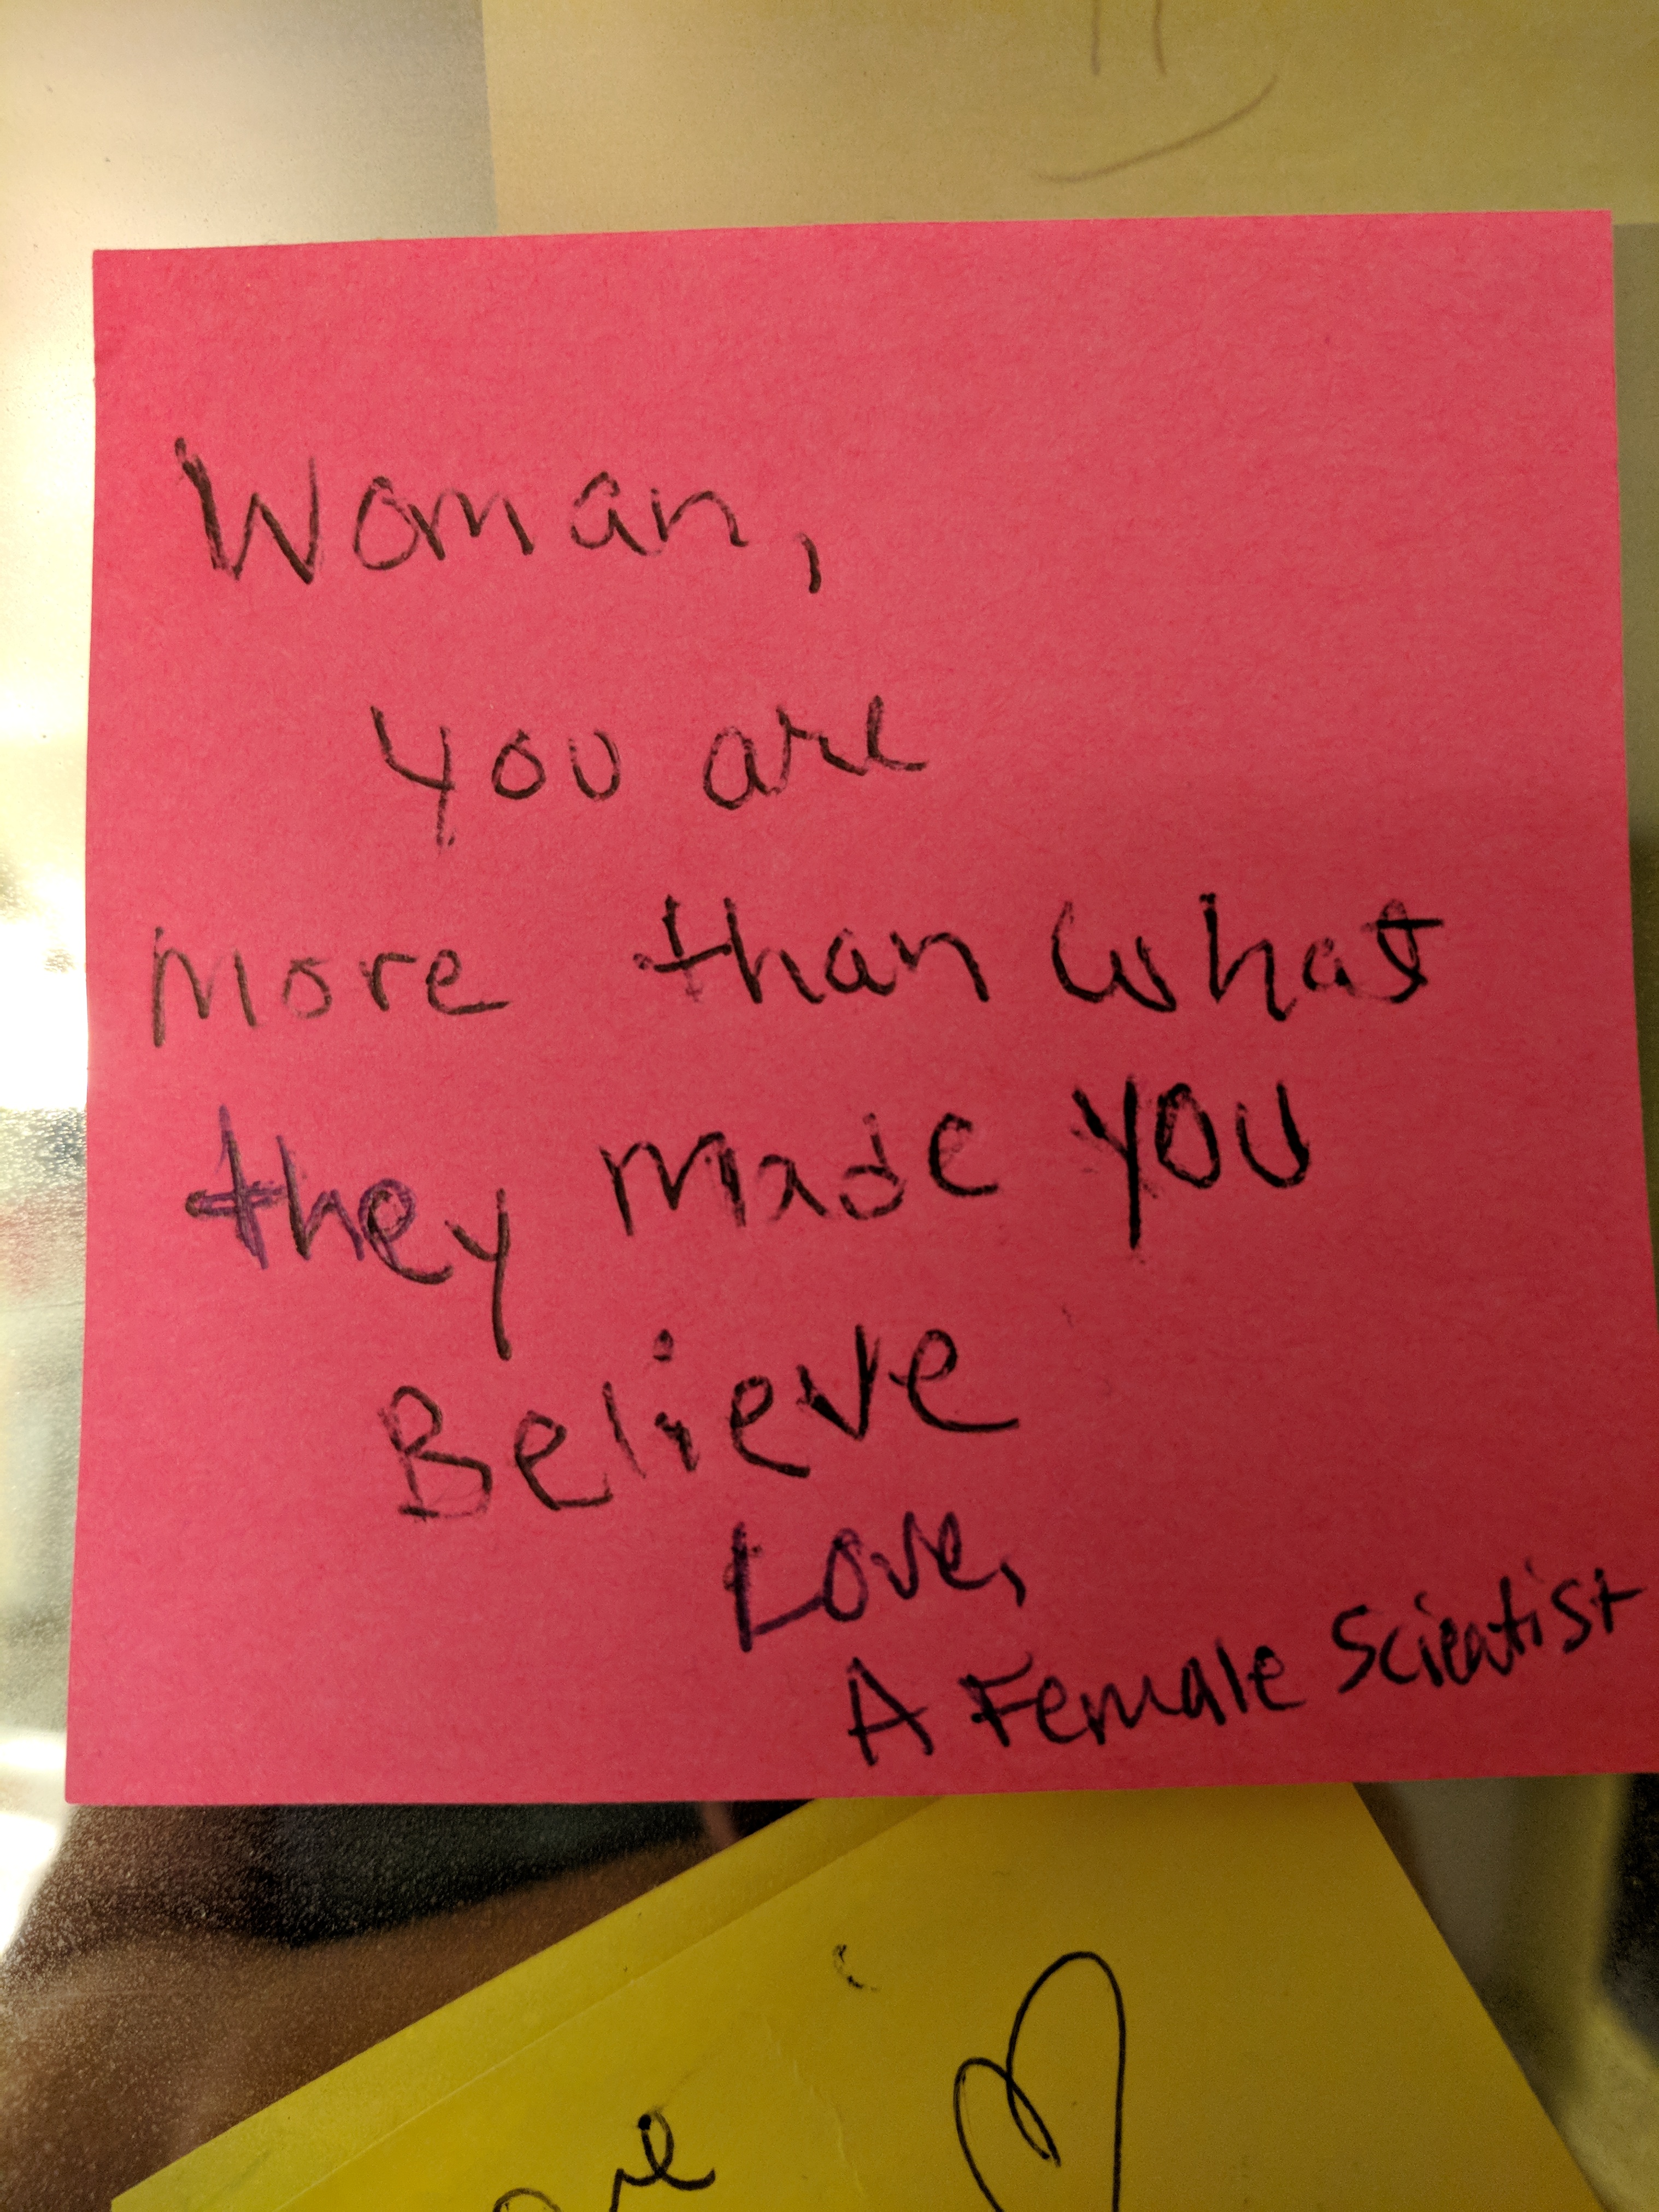 Woman,
you are
more than what
they made you
Believe
Love,
A Female Scientist